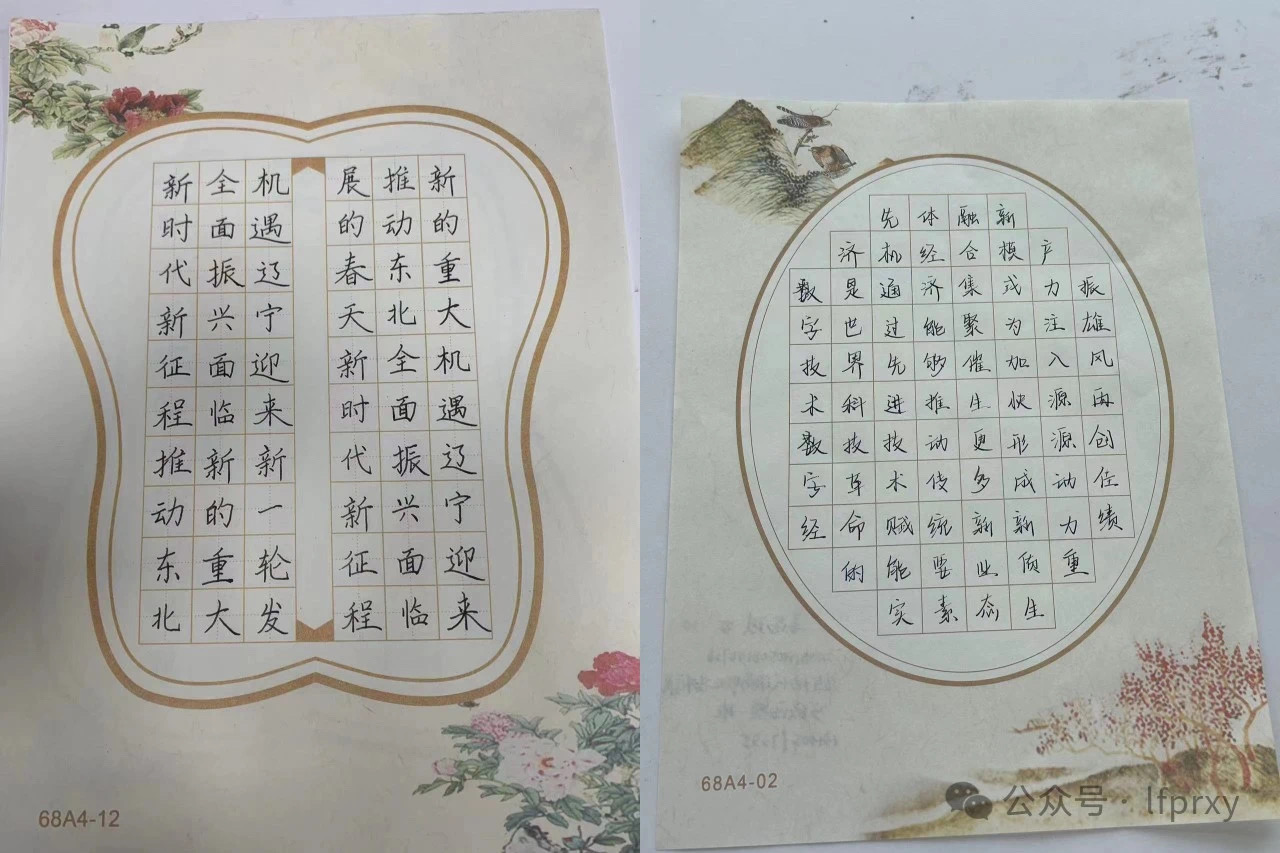 新时代新征程推动东北
全面振兴面临新的重大
机遇辽宁迎来新一轮发
展的春天新时代新征程
推动东北全面振兴面临
新的重大机遇辽宁迎来
68A4-12
数字技术数字经
济是世界科技革命的
先机通过先进技术赋能实
体经济能够推动传统要素
融合集聚催生更多新业态
新模式为加快形成新质生
产力注入源源动力重
振雄风再创佳绩
68A4-02
公众号·lfprxy